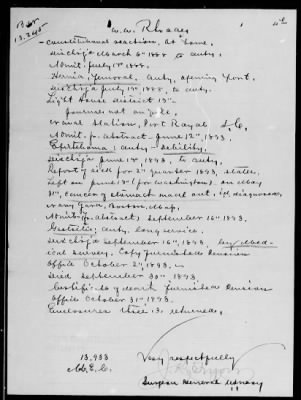 W.W. Rhoades
4th
13.248
Constitutional reaction, at home,
Disch'g'd March 6th 1888 to duty.
Admit. July 1st 1888.
Hernia, femoral, duty, opening port.
Disch'g'd July 1st 1888, to duty.
Light House district 13th
Journal not on file.
Naval Station, Port Royal S.C.
Admit. p. abstract June 12th, 1893.
Epithelioma; duty - debility.
Disch'g'd June 1893, to duty.
Report of sick for 2nd quarter 1893, states
Left on June (for Washington) on May
31st, cancer of stomach made out, diagnosed,
Navy Yard, Boston, Mass.
Admit p. abstract, September 16th 1893,
Gastritis; duty, long service.
Disch'g'd September 16th, 1893, by Med-
ical survey. Copy furnished Pension
Office October 2nd, 1893.
Died September 30th 1893
Certificate of death furnished Pension
Office October 31st 1893.
Enclosures three (3) returned.
13.933
Very respectfully
Surgeon General U.S. Navy